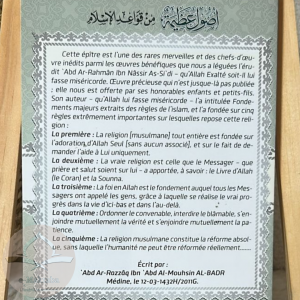 أصول عظيمة من قواعد الإسلام
Cette épître est l'une des rares merveilles et des chefs-d'œu-
vre inédits parmi les œuvres bénéfiques que nous a léguées l'éru-
dit 'Abd Ar-Rahmân Ibn Nâssir As-Si'dî – qu'Allah Exalté soit-il lui
fasse miséricorde. Œuvre précieuse qui n'est jusque-là pas publiée
: elle nous est offerte par ses honorables enfants et petits-fils.
Son auteur – qu'Allah lui fasse miséricorde – l'a intitulée Fonde-
ments majeurs extraits des règles de l'Islam, et l'a fondée sur cinq
règles extrêmement importantes sur lesquelles repose cette reli-
gion :
La première : La religion [musulmane] tout entière est fondée sur
l'adoration d'Allah Seul [sans aucun associé], et sur le fait de de-
mander l'aide à Lui uniquement.
La deuxième : La vraie religion est celle que le Messager – que
prière et salut soient sur lui – a apportée, à savoir : le Livre d'Allah
(le Coran) et la Sounna.
La troisième : La foi en Allah est le fondement auquel tous les Mes-
sagers ont appelé les gens, grâce à laquelle se réalise le vrai pro-
grès dans la vie d'ici-bas et dans l'au-delà.
La quatrième : Ordonner le convenable, interdire le blâmable, s'en-
joindre mutuellement la vérité et s'enjoindre mutuellement la pa-
tience.
La cinquième : La religion musulmane constitue la réforme absol-
ue, sans laquelle l'humanité ne peut être réformée réellement......
Écrit par :
'Abd Ar-Razzâq Ibn 'Abd Al-Mouhsin AL-BADR
Médine, le 12-03-1432H/2011G.